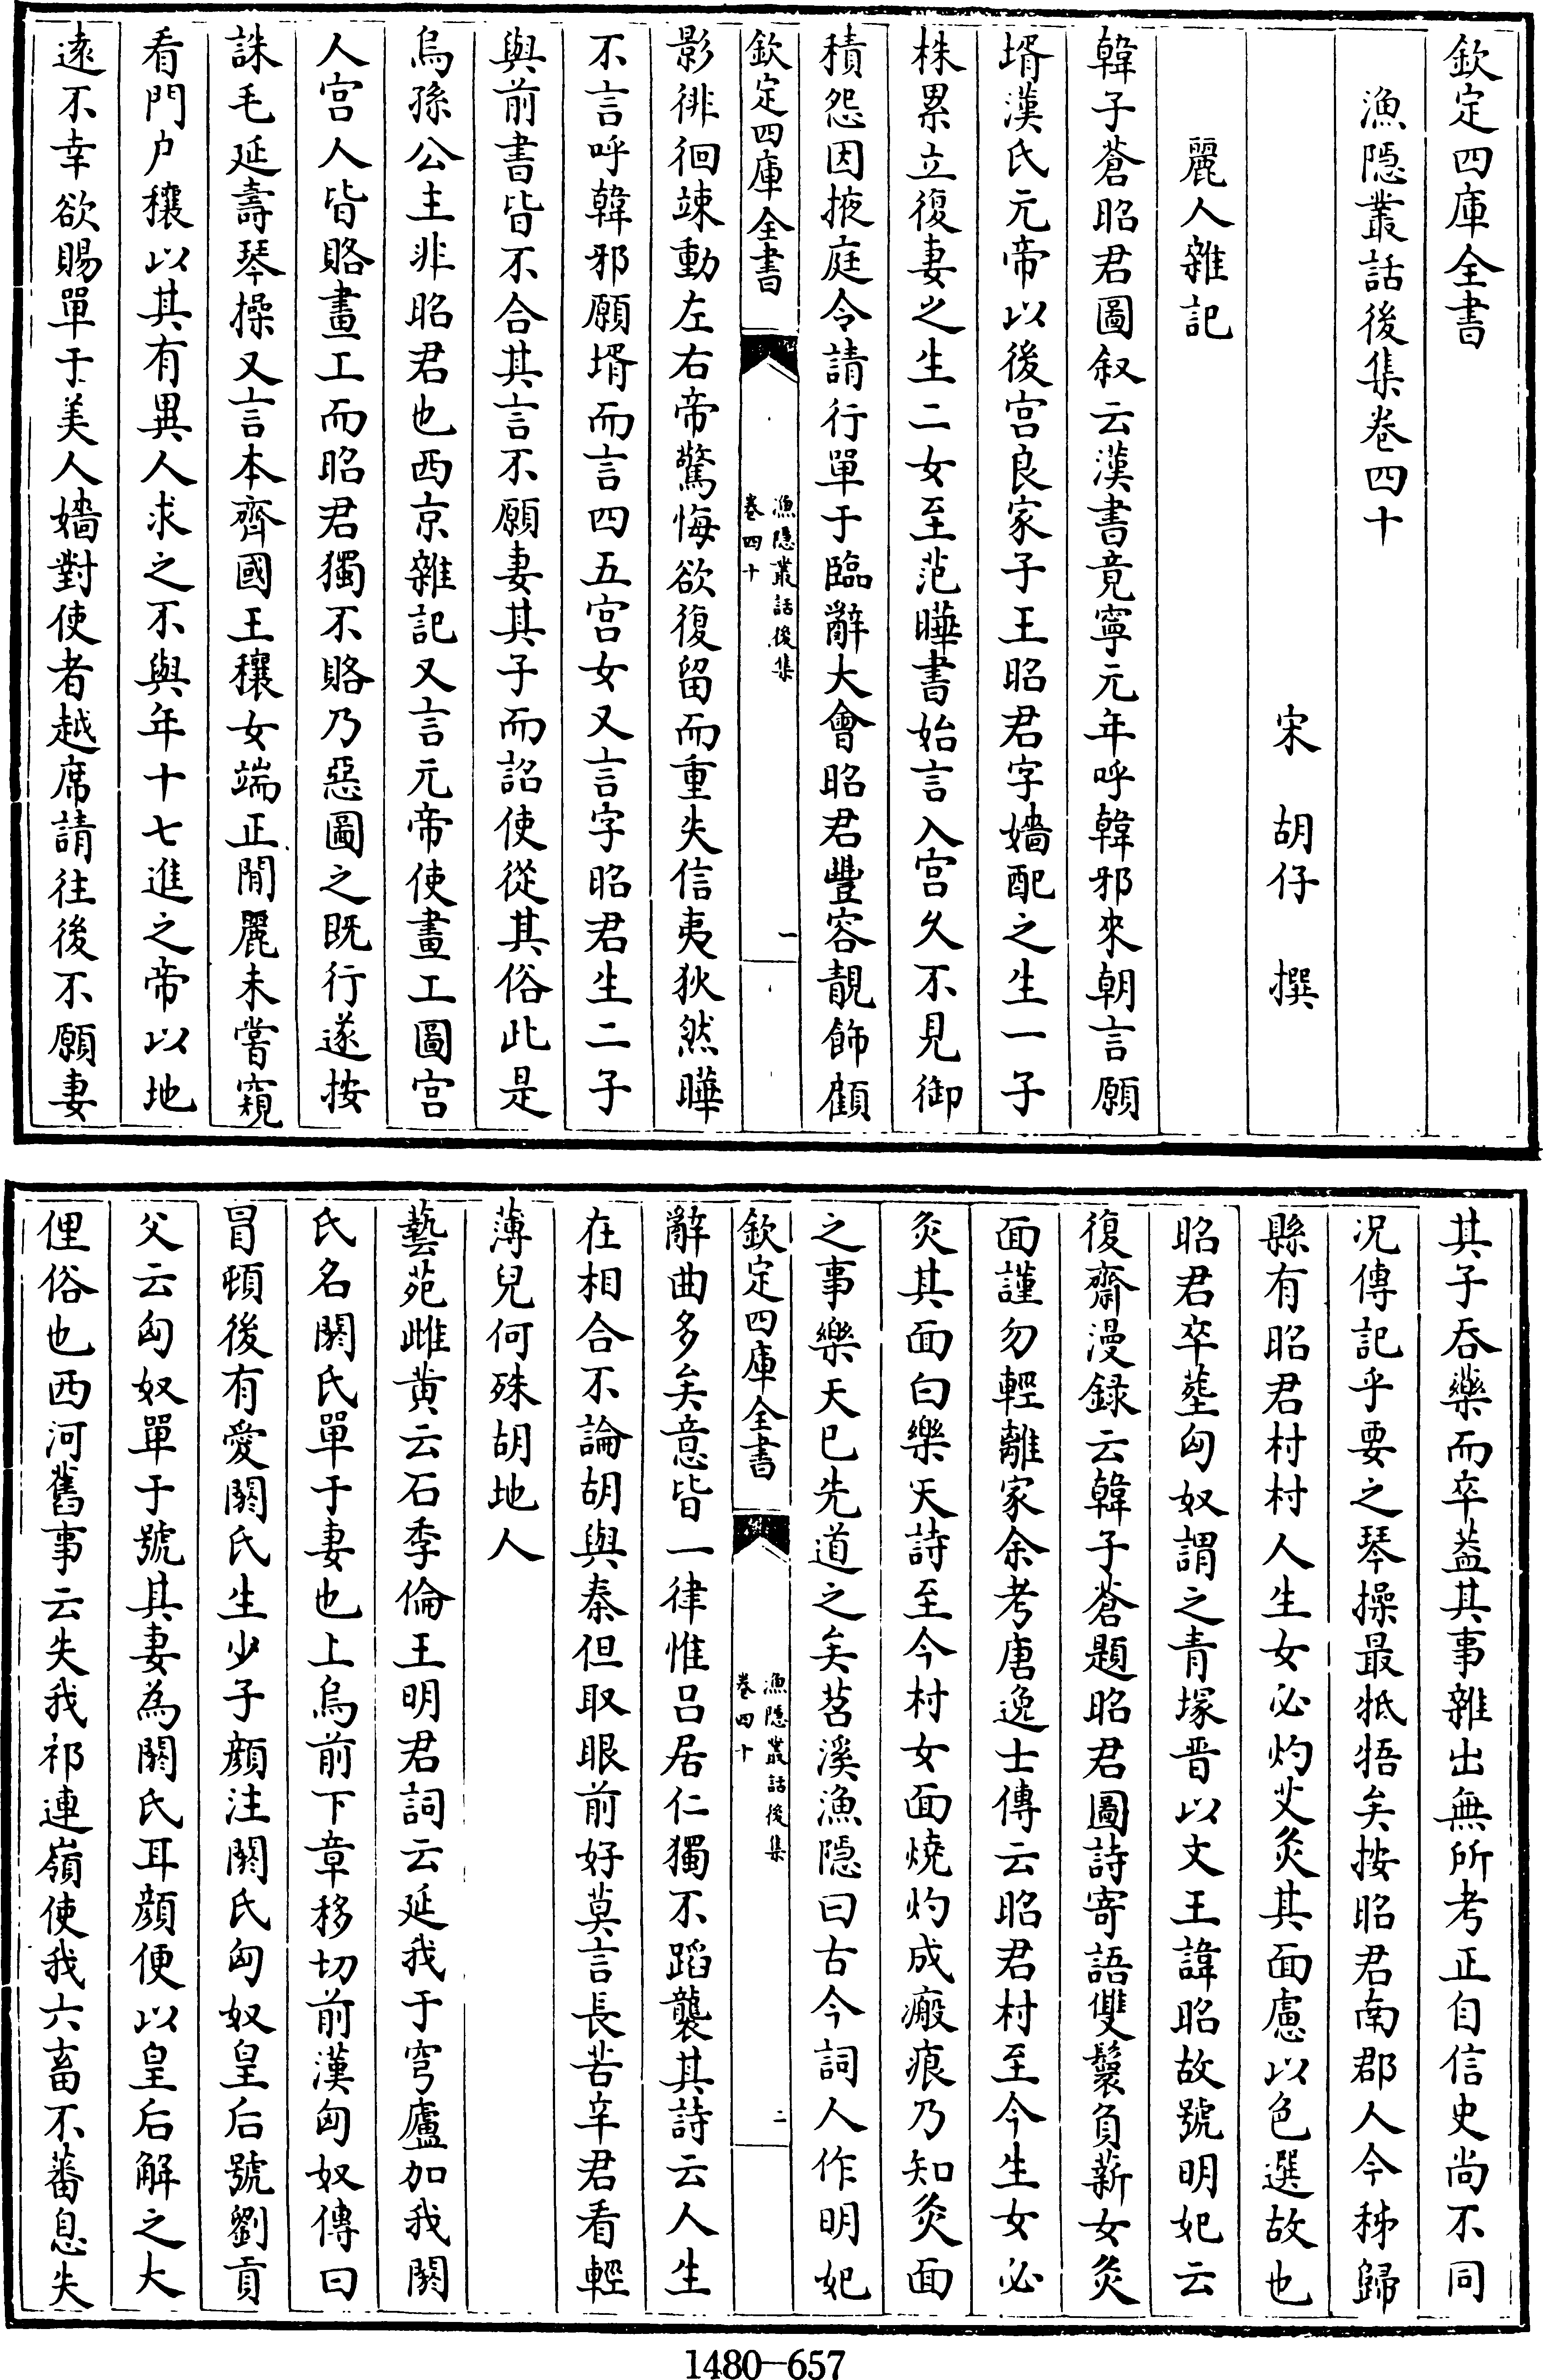 欽定四庫全書
漁隠叢話後集卷四十
宋　胡仔　撰
麗人雜記
韓子蒼昭君圖叙云漢書竟寧元年呼韓邪來朝言願
壻漢氏元帝以後宫良家子王昭君字嬙配之生一子
株累立復妻之生二女至范曄書始言入宫久不見御
積怨因掖庭令請行單于臨辭大會昭君豐容靚飾顧
欽定四庫全書
漁隠叢話後集
卷四十
一
影徘徊竦動左右帝驚悔欲復留而重失信夷狄然曄
不言呼韓邪願壻而言四五宫女又言字昭君生二子
與前書皆不合其言不願妻其子而詔使從其俗此是
烏孫公主非昭君也西京雜記又言元帝使畫工圖宫
人宫人皆賂畫工而昭君獨不賂乃惡圖之既行遂按
誅毛延壽琴操又言本齊國王穰女端正閒麗未嘗窺
看門户穰以其有異人求之不與年十七進之帝以地
逺不幸欲賜單于美人嬙對使者越席請往後不願妻
其子吞藥而卒葢其事雜出無所考正自信史尚不同
况傳記乎要之琴操最牴牾矣按昭君南郡人今秭歸
縣有昭君村村人生女必灼艾灸其面慮以色選故也
昭君卒塟匈奴謂之青塚晋以文王諱昭故號明妃云
復齋漫録云韓子蒼題昭君圖詩寄語雙鬟負薪女灸
面謹勿輕離家余考唐逸士傳云昭君村至今生女必
灸其面白樂天詩至今村女面燒灼成瘢痕乃知灸面
之事樂天已先道之矣苕溪漁隠曰古今詞人作明妃
欽定四庫全書
漁隠叢話後集
卷四十
二
辭曲多矣意皆一律惟吕居仁獨不蹈襲其詩云人生
在相合不論胡與秦但取眼前好莫言長苦辛君看輕
薄兒何殊胡地人
藝苑雌黄云石季倫王明君詞云延我于穹廬加我閼
氏名閼氏單于妻也上烏前下章移切前漢匈奴傳曰
冒頓後有愛閼氏生少子顔注閼氏匈奴皇后號劉貢
父云匈奴單于號其妻為閼氏耳顔便以皇后解之大
俚俗也西河舊事云失我祁連嶺使我六畜不蕃息失
1480—657